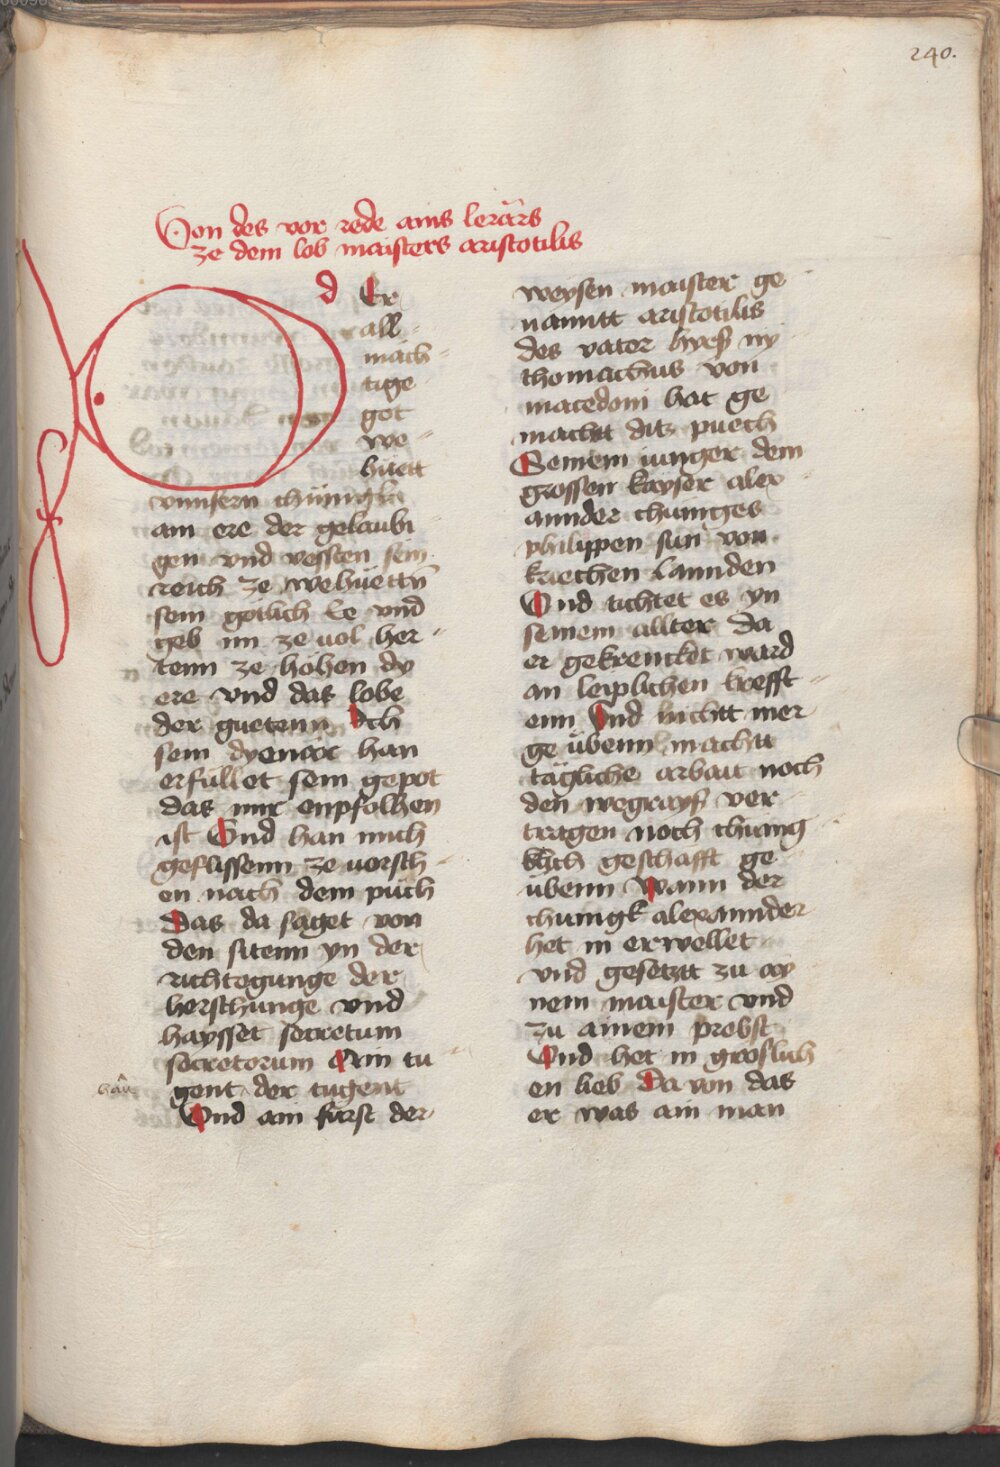 240.
Von des vor rede ains lerärs
ze dem lob maisters aristotilis
d Er
all
mäch
tige
got
we
hüett
vnnsern chünigk
am ere der gelaubi
gen vnd vessten sein
reich ze wehüettn
sein gotlich Ee vnd
geb im ze uol her
tenn ze höhen dy
ere vnd das lobe
der guetenn Ich
sein dyenner han
erfüllet sein gepot
das mir enpfolhen
ist Vnd han mich
geflissenn ze vorsch
en nach dem püch
Das da saget von
den sitenn yn der
richtegunge der
herschunge vnd
haysset secretum
secretorum Ain tu
gent der tugent
Vnd ain fürst der
weysen maister ge
nanntt aristotilis
des vater hyeß ny
thomachus von
macedoni hat ge
macht ditz puech
Seinem iunger dem
grossen kayser alex
annder chüniges
philippen sun von
kriechen lannden
Vnd tichtet es yn
seinem allter da
er gekrencket ward
an leiplichen krefft
enn Vnd nichtt mer
ge übenn machtt
tägliche arbait noch
den wegrayß ver
tragen noch chunig
klich geschafft ge
übenn Wann der
chunigk alexannder
het in erwellet
vnd gesetztt zu ay
nem maister vnd
zu ainem probst
Vnd het in groslich
en lieb Da von das
er was ain man